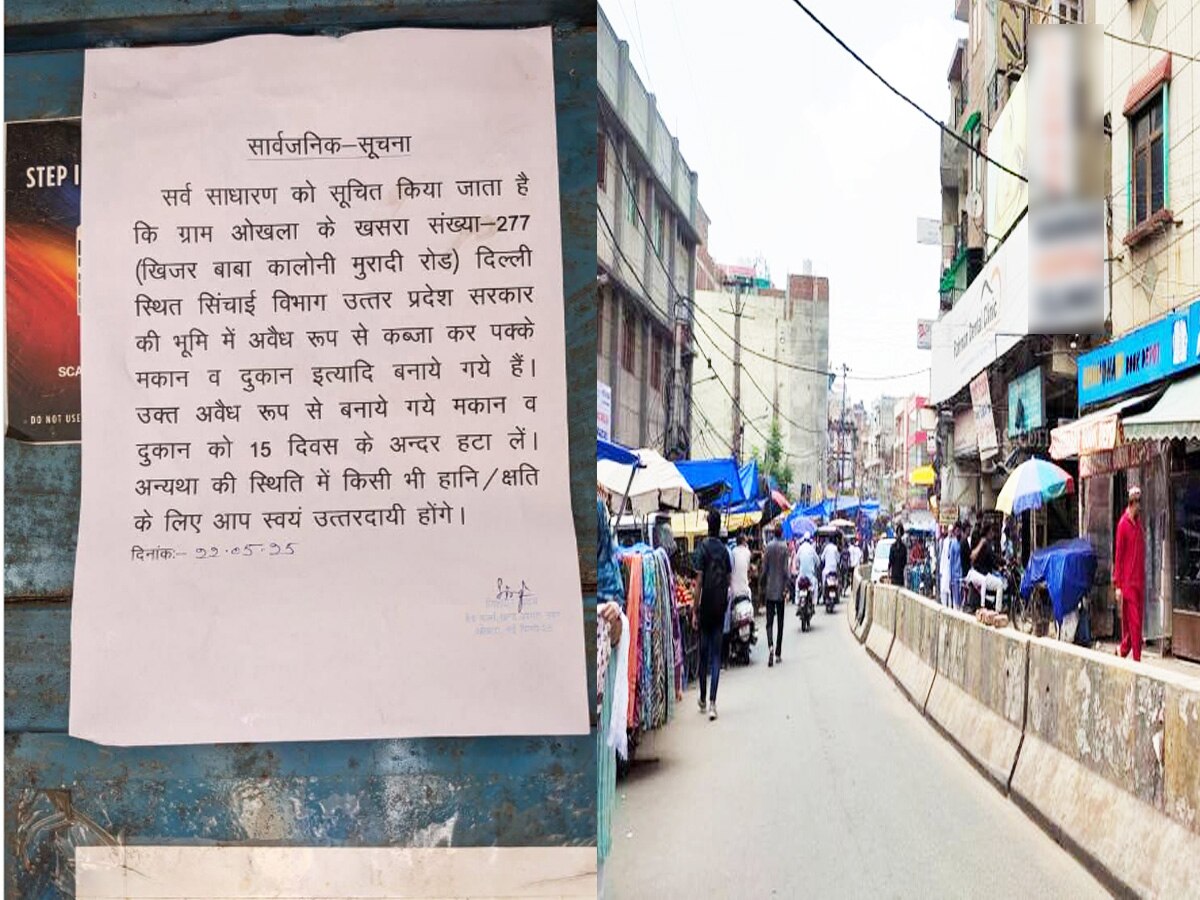 सार्वजनिक–सूचना
सर्व साधारण को सूचित किया जाता है
कि ग्राम ओखला के खसरा संख्या–277
(खिजर बाबा कालोनी मुरादी रोड) दिल्ली
स्थित सिंचाई विभाग उत्तर प्रदेश सरकार
की भूमि में अवैध रूप से कब्जा कर पक्के
मकान व दुकान इत्यादि बनाये गये हैं।
उक्त अवैध रूप से बनाये गये मकान व
दुकान को 15 दिवस के अन्दर हटा लें।
अन्यथा की स्थिति में किसी भी हानि/क्षति
के लिए आप स्वयं उत्तरदायी होंगे।
दिनांकः–
STEP I
SCA
DO NOT USE
Clinic
BOOK DEPOT